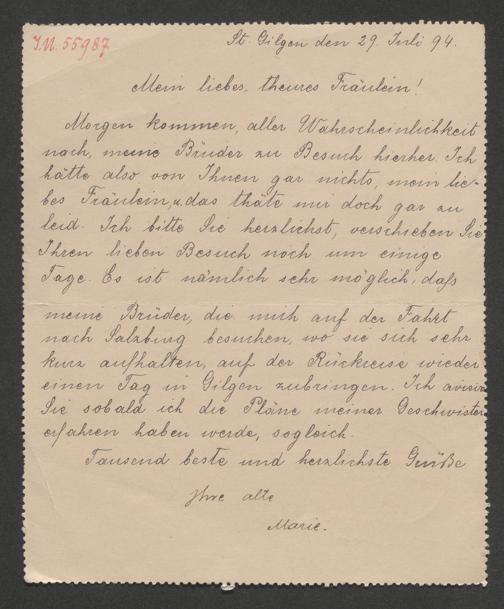 I.N. 55987
St. Gilgen den 29. Juli 94.
Mein liebes, theures Fräulein!
Morgen kommen, aller Wahrscheinlichkeit
nach, meine Brüder zu Besuch hierher. Ich
hätte also von Ihnen gar nichts, mein lie-
bes Fräulein, u. das thäte mir doch gar zu
leid. Ich bitte Sie herzlichst, verschieben Sie
Ihren lieben Besuch noch um einige
Tage. Es ist nämlich sehr möglich, daſs
meine Brüder, die mich auf der Fahrt
nach Salzburg besuchen, wo sie sich sehr
kurz aufhalten, auf der Rückreise wieder
einen Tag in Gilgen zubringen. Ich avisire
Sie sobald ich die Pläne meiner Geschwister
erfahren haben werde, sogleich.
Tausend beste und herzlichste Grüße
Ihre alte
Marie.